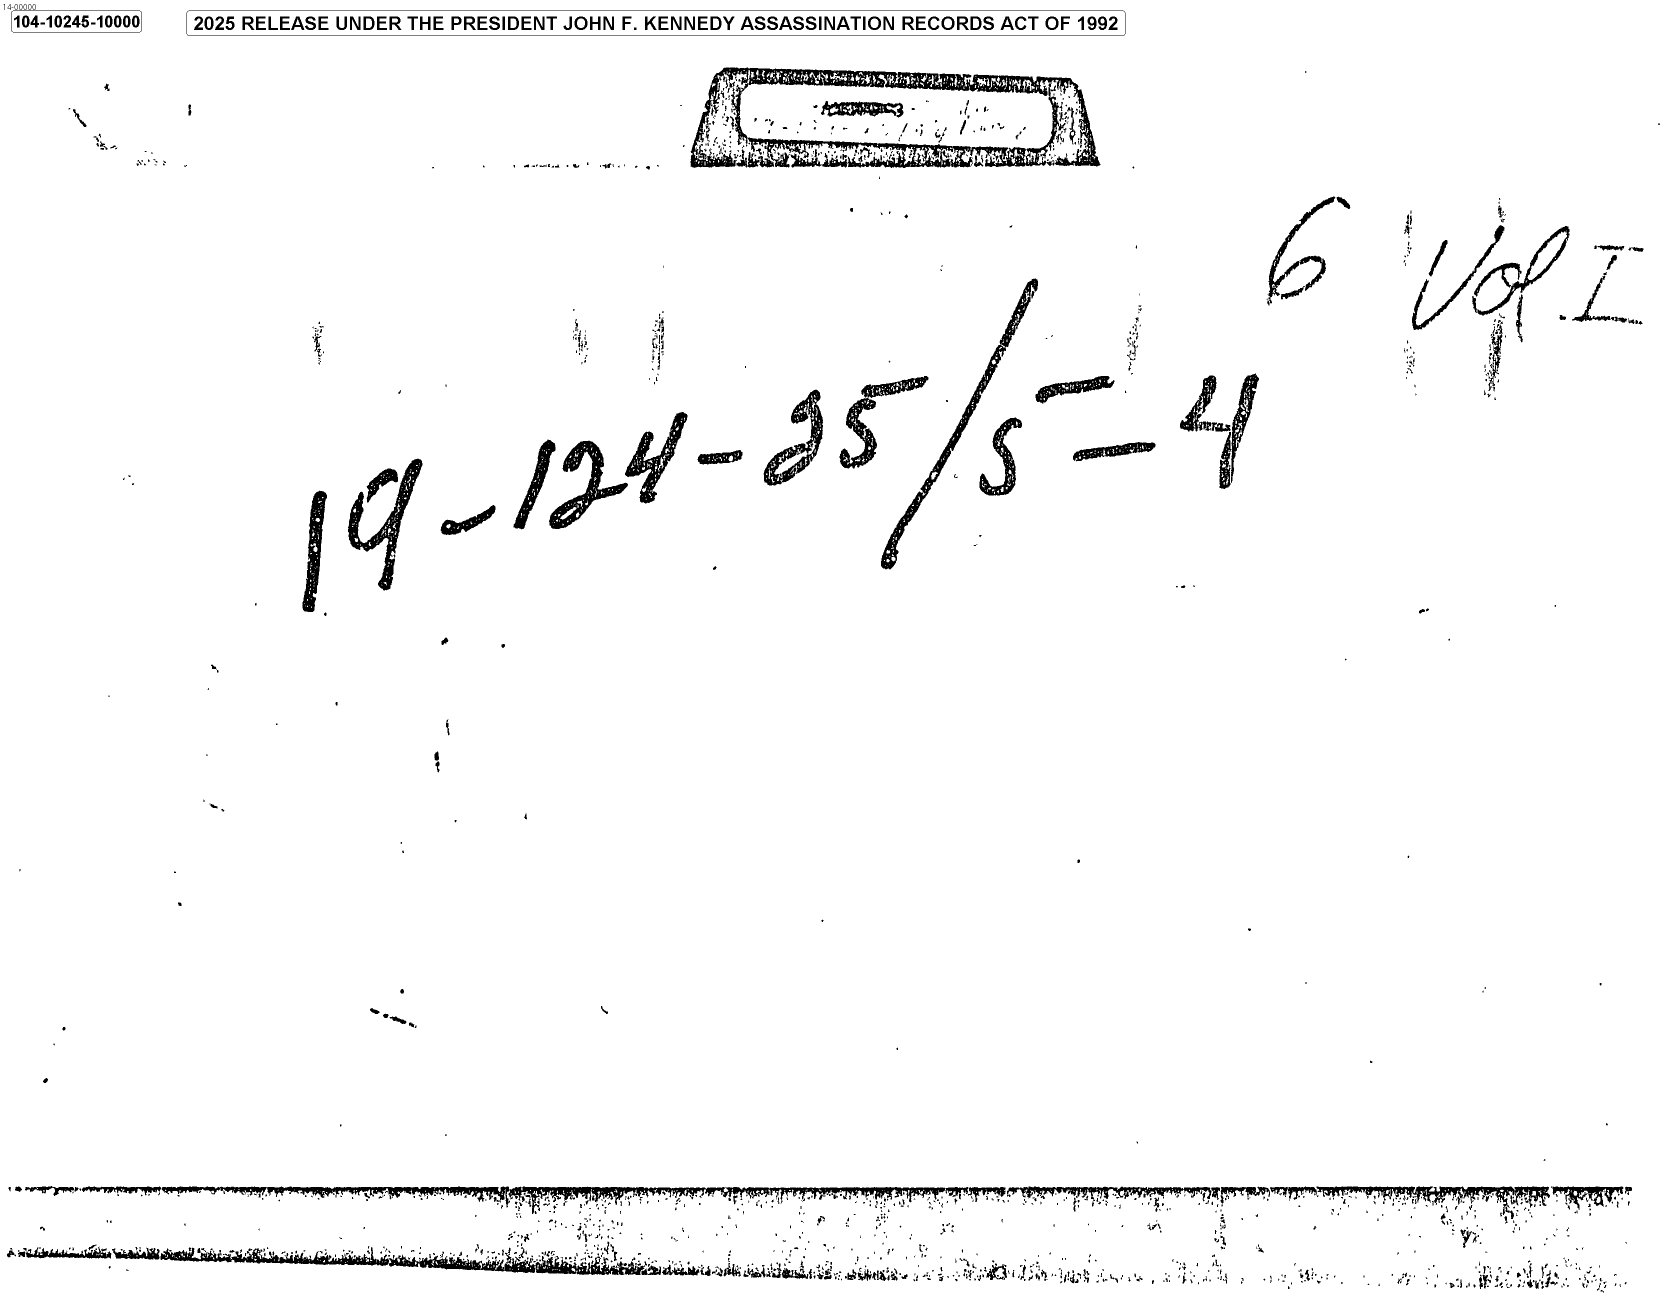 14-00000
104-10245-10000 2025 RELEASE UNDER THE PRESIDENT JOHN F. KENNEDY ASSASSINATION RECORDS ACT OF 1992
6 Vol. I
19-124-25/5-4